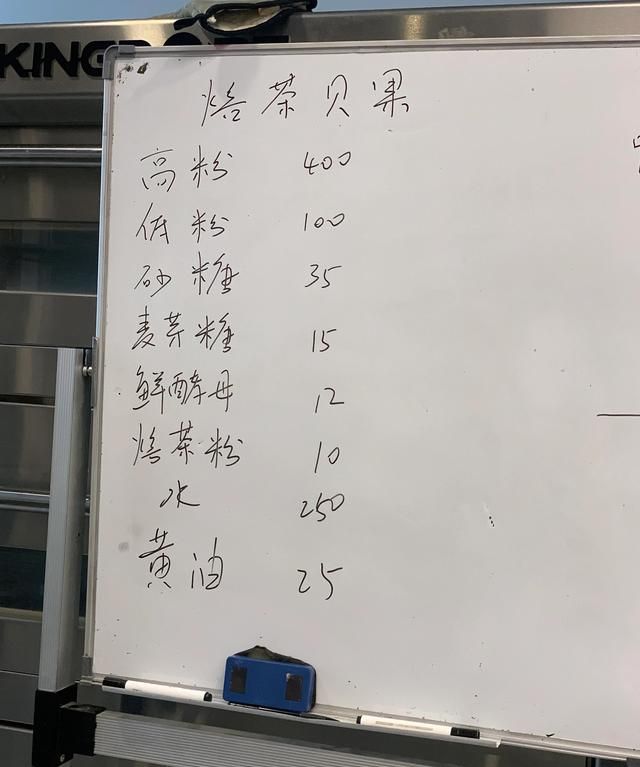 焙茶贝果
高粉 400
低粉 100
砂糖 35
麦芽糖 15
鲜酵母 12
焙茶粉 10
水 250
黄油 25